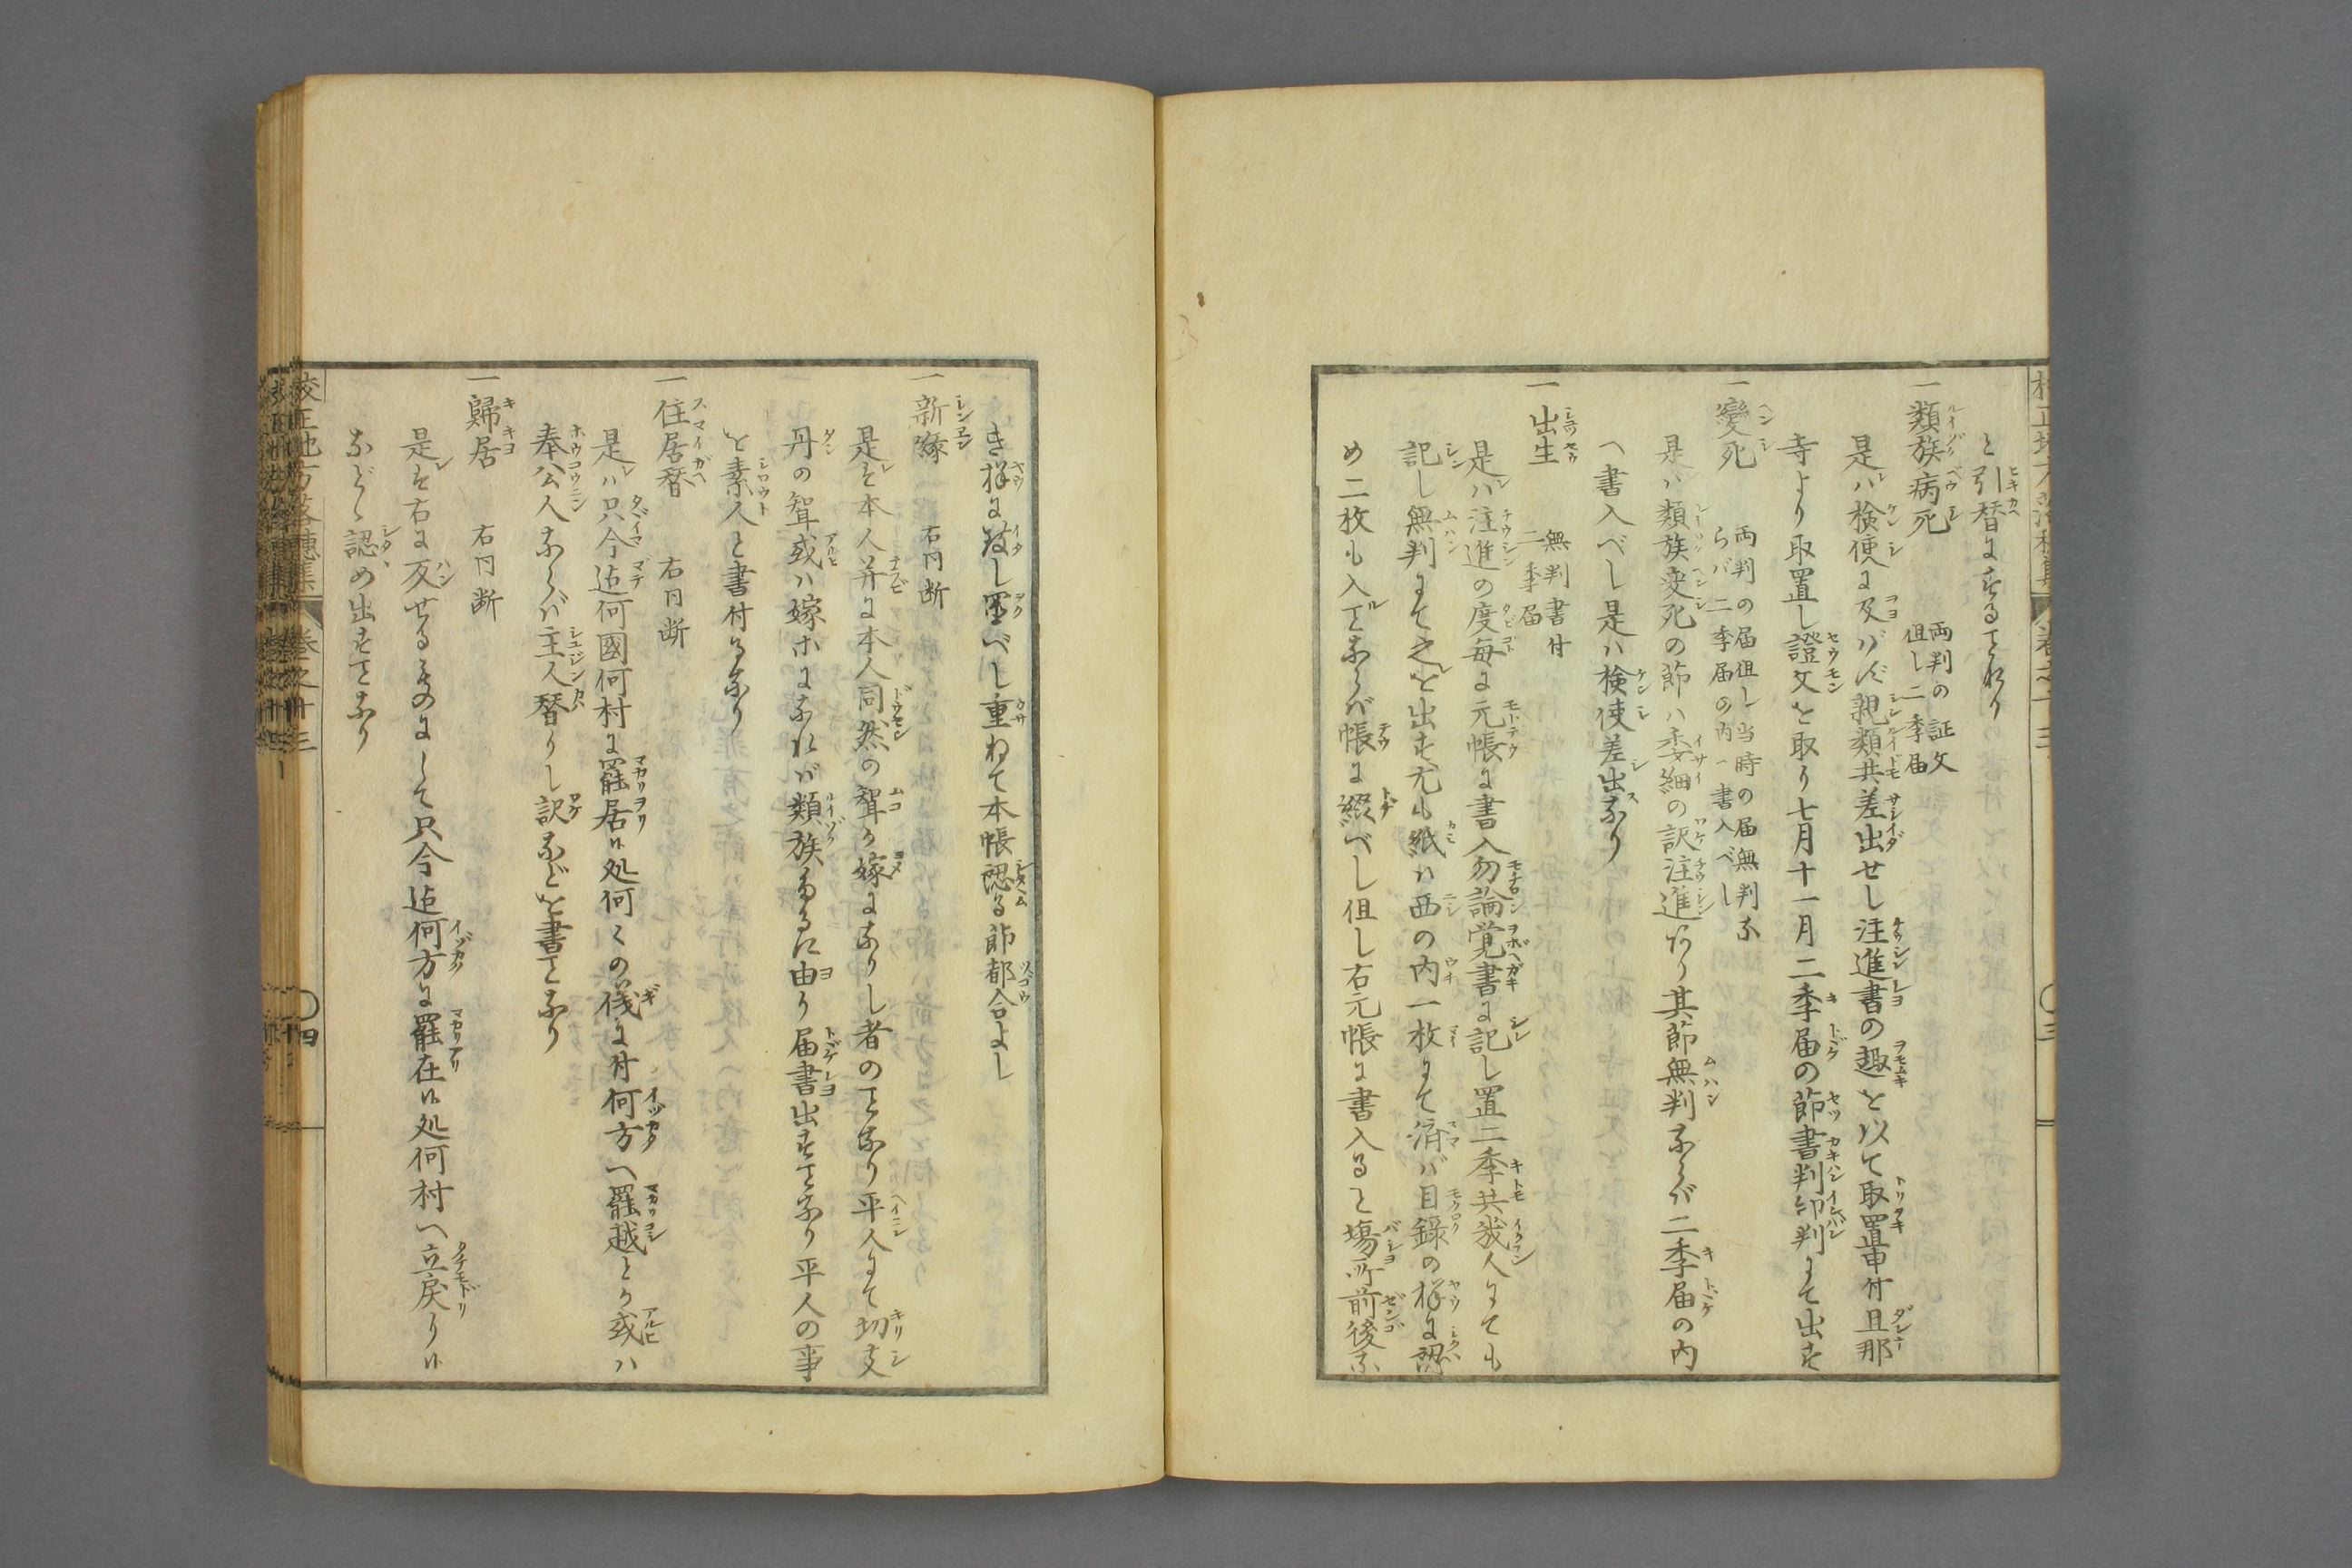 と引替にするヿなり
一類族病死　両判の証文
　　　　　　但し二季届
是ハ検使に及バず親類共差出せし注進書の趣を以て取置申付旦那
寺より取置し證文を取り七月十一月二季届の節書判印判にて出す
一變死　両判の届但し当時の届無判な
　　　　らバ二季届の内へ書入べし
是ハ類族変死の節ハ委細の訳注進あり其節無判ならバ二季届の内
へ書入べし是ハ検使差出なり
一出生　無判書付
　　　　二季届
是ハ注進の度毎に元帳に書入勿論覚書に記し置二季共我人にても
記し無判にて之を出す尤も紙ハ西の内一枚にて済バ目録の様に認
め二枚も入ヿならバ帳に綴べし但し右元帳に書入ると場所前後な
き様に致し置べし重ねて本帳認る節都合よし
一新縁　右同断
是ハ本人并に本人同然の聟か嫁になりし者のヿなり平人にて切支
丹の聟或ハ嫁等になれバ類族なるに由り届書出すヿなり平人の事
を素人と書付るなり
一住居替　右同断
是ハ只今迄何國何村に罷居候処何々の儀に付何方へ罷越とか或ハ
奉公人ならバ主人替りし訳などを書ヿなり
一歸居　右同断
是ハ右に反せるものにして只今迄何方に罷在候処何村へ立戻り候
なども認め出すヿなり
校正地方落穂集　巻之十三　四